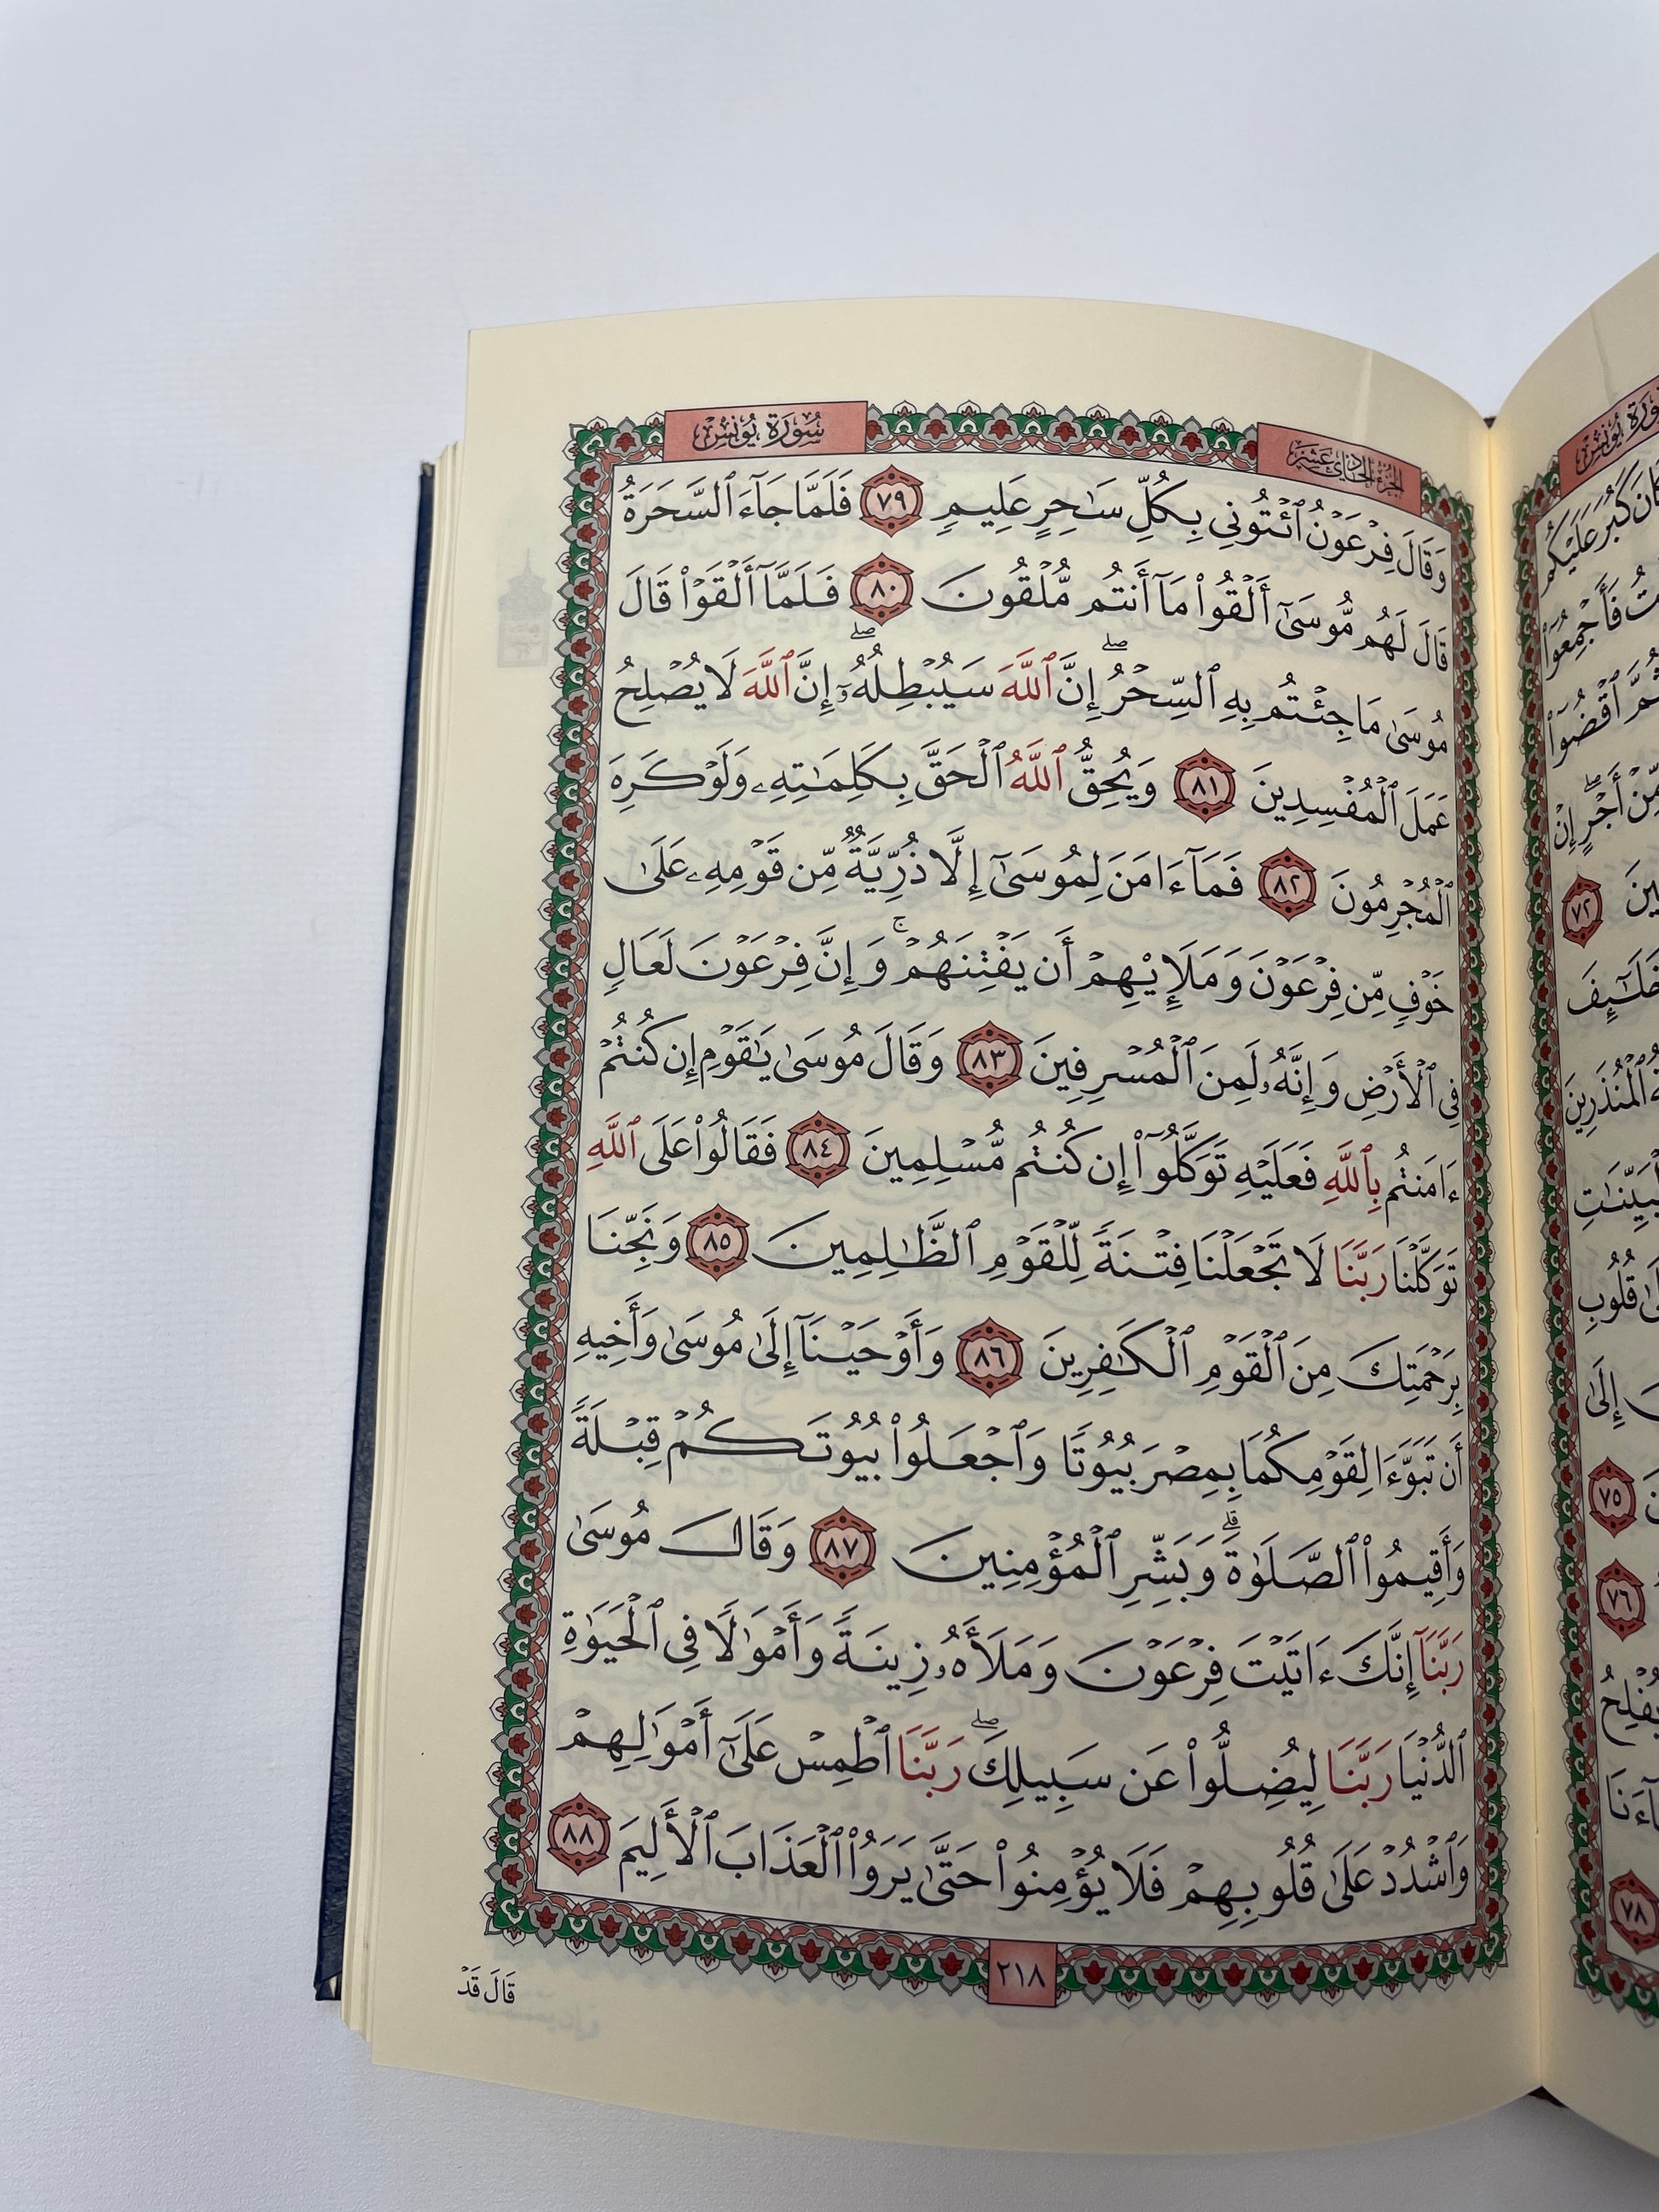 الجزء الحادي عشر
سورة يونس
وَقَالَ فِرْعَوْنُ ٱئْتُونِي بِكُلِّ سَٰحِرٍ عَلِيمٍ ٧٩ فَلَمَّا جَآءَ ٱلسَّحَرَةُ
قَالَ لَهُم مُّوسَىٰٓ أَلْقُوا۟ مَآ أَنتُم مُّلْقُونَ ٨٠ فَلَمَّآ أَلْقَوْا۟ قَالَ
مُوسَىٰ مَا جِئْتُم بِهِ ٱلسِّحْرُ ۖ إِنَّ ٱللَّهَ سَيُبْطِلُهُۥٓ ۖ إِنَّ ٱللَّهَ لَا يُصْلِحُ
عَمَلَ ٱلْمُفْسِدِينَ ٨١ وَيُحِقُّ ٱللَّهُ ٱلْحَقَّ بِكَلِمَٰتِهِۦ وَلَوْ كَرِهَ
ٱلْمُجْرِمُونَ ٨٢ فَمَآ ءَامَنَ لِمُوسَىٰٓ إِلَّا ذُرِّيَّةٌ مِّن قَوْمِهِۦ عَلَىٰ
خَوْفٍ مِّن فِرْعَوْنَ وَمَلَإِي۟هِمْ أَن يَفْتِنَهُمْ ۚ وَإِنَّ فِرْعَوْنَ لَعَالٍ
فِي ٱلْأَرْضِ وَإِنَّهُۥ لَمِنَ ٱلْمُسْرِفِينَ ٨٣ وَقَالَ مُوسَىٰ يَٰقَوْمِ إِن كُنتُمْ
ءَامَنتُم بِٱللَّهِ فَعَلَيْهِ تَوَكَّلُوٓا۟ إِن كُنتُم مُّسْلِمِينَ ٨٤ فَقَالُوا۟ عَلَى ٱللَّهِ
تَوَكَّلْنَا رَبَّنَا لَا تَجْعَلْنَا فِتْنَةً لِّلْقَوْمِ ٱلظَّٰلِمِينَ ٨٥ وَنَجِّنَا
بِرَحْمَتِكَ مِنَ ٱلْقَوْمِ ٱلْكَٰفِرِينَ ٨٦ وَأَوْحَيْنَآ إِلَىٰ مُوسَىٰ وَأَخِيهِ
أَن تَبَوَّءَا لِقَوْمِكُمَا بِمِصْرَ بُيُوتًا وَٱجْعَلُوا۟ بُيُوتَكُمْ قِبْلَةً
وَأَقِيمُوا۟ ٱلصَّلَوٰةَ ۗ وَبَشِّرِ ٱلْمُؤْمِنِينَ ٨٧ وَقَالَ مُوسَىٰ
رَبَّنَآ إِنَّكَ ءَاتَيْتَ فِرْعَوْنَ وَمَلَأَهُۥ زِينَةً وَأَمْوَٰلًا فِي ٱلْحَيَوٰةِ
ٱلدُّنْيَا رَبَّنَا لِيُضِلُّوا۟ عَن سَبِيلِكَ ۖ رَبَّنَا ٱطْمِسْ عَلَىٰٓ أَمْوَٰلِهِمْ
وَٱشْدُدْ عَلَىٰ قُلُوبِهِمْ فَلَا يُؤْمِنُوا۟ حَتَّىٰ يَرَوُا۟ ٱلْعَذَابَ ٱلْأَلِيمَ ٨٨
٢١٨
قَالَ قَدْ
كَبُرَ عَلَيْكُم
فَأَجْمِعُوٓا۟
ٱقْضُوٓا۟
مِّنْ أَجْرٍ ۖ إِنْ
٧٢
خَلَٰٓئِفَ
ٱلْمُنذَرِينَ
قُلُوبِ
٧٥
إِلَىٰ
٧٦
٧٨